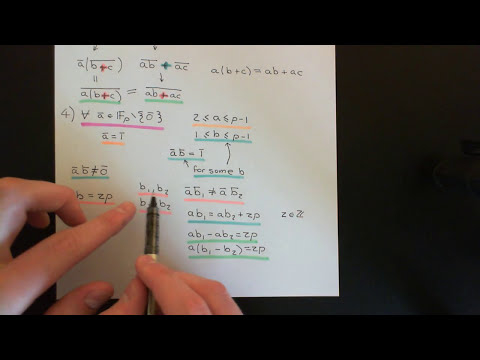 a̅(b+c) a̅b̅ + a̅c̅
a(b+c) = ab + ac
a(b+c) = ab+ac
4) ∀ a̅ ∈ 𝔽p \ {0̅}
2 ≤ a ≤ p-1
a̅ = 1̅
1 ≤ b ≤ p-1
a̅ b̅ = 1̅
for some b
a̅ b̅ ≠ 0̅
b₁, b₂
a̅ b̅₁ ≠ a̅ b̅₂
b = zp
b₂
ab₁ = ab₂ + zp z ∈ ℤ
ab₁ - ab₂ = zp
a(b₁ - b₂) = zp